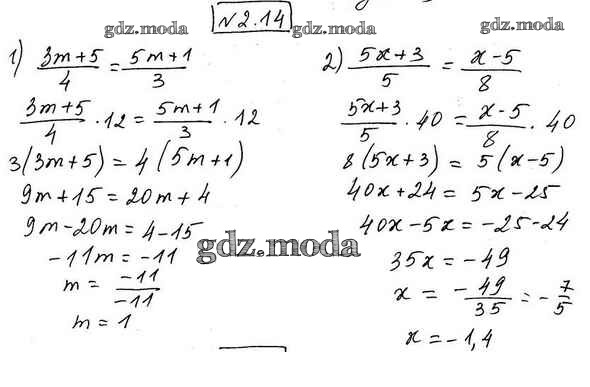 №2.14
gdz.moda gdz.moda gdz.moda
1) (3m+5)/4 = (5m+1)/3
(3m+5)/4 · 12 = (5m+1)/3 · 12
3(3m+5) = 4(5m+1)
9m+15 = 20m+4
9m-20m = 4-15
-11m = -11
m = -11/-11
m = 1
2) (5x+3)/5 = (x-5)/8
(5x+3)/5 · 40 = (x-5)/8 · 40
8(5x+3) = 5(x-5)
40x+24 = 5x-25
40x-5x = -25-24
gdz.moda
35x = -49
x = -49/35 = -7/5
x = -1,4